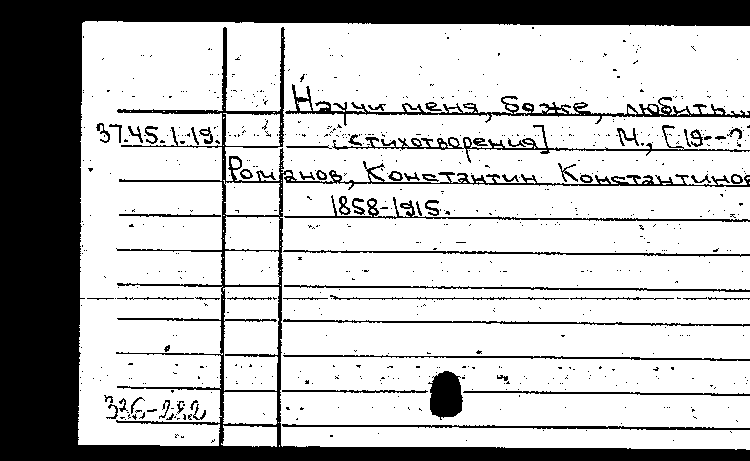 Научи меня, боже, любить...
37.45.1.19. [стихотворения] М., [19--?]
Романов, Константин Константинов
1858-1915.
336-282